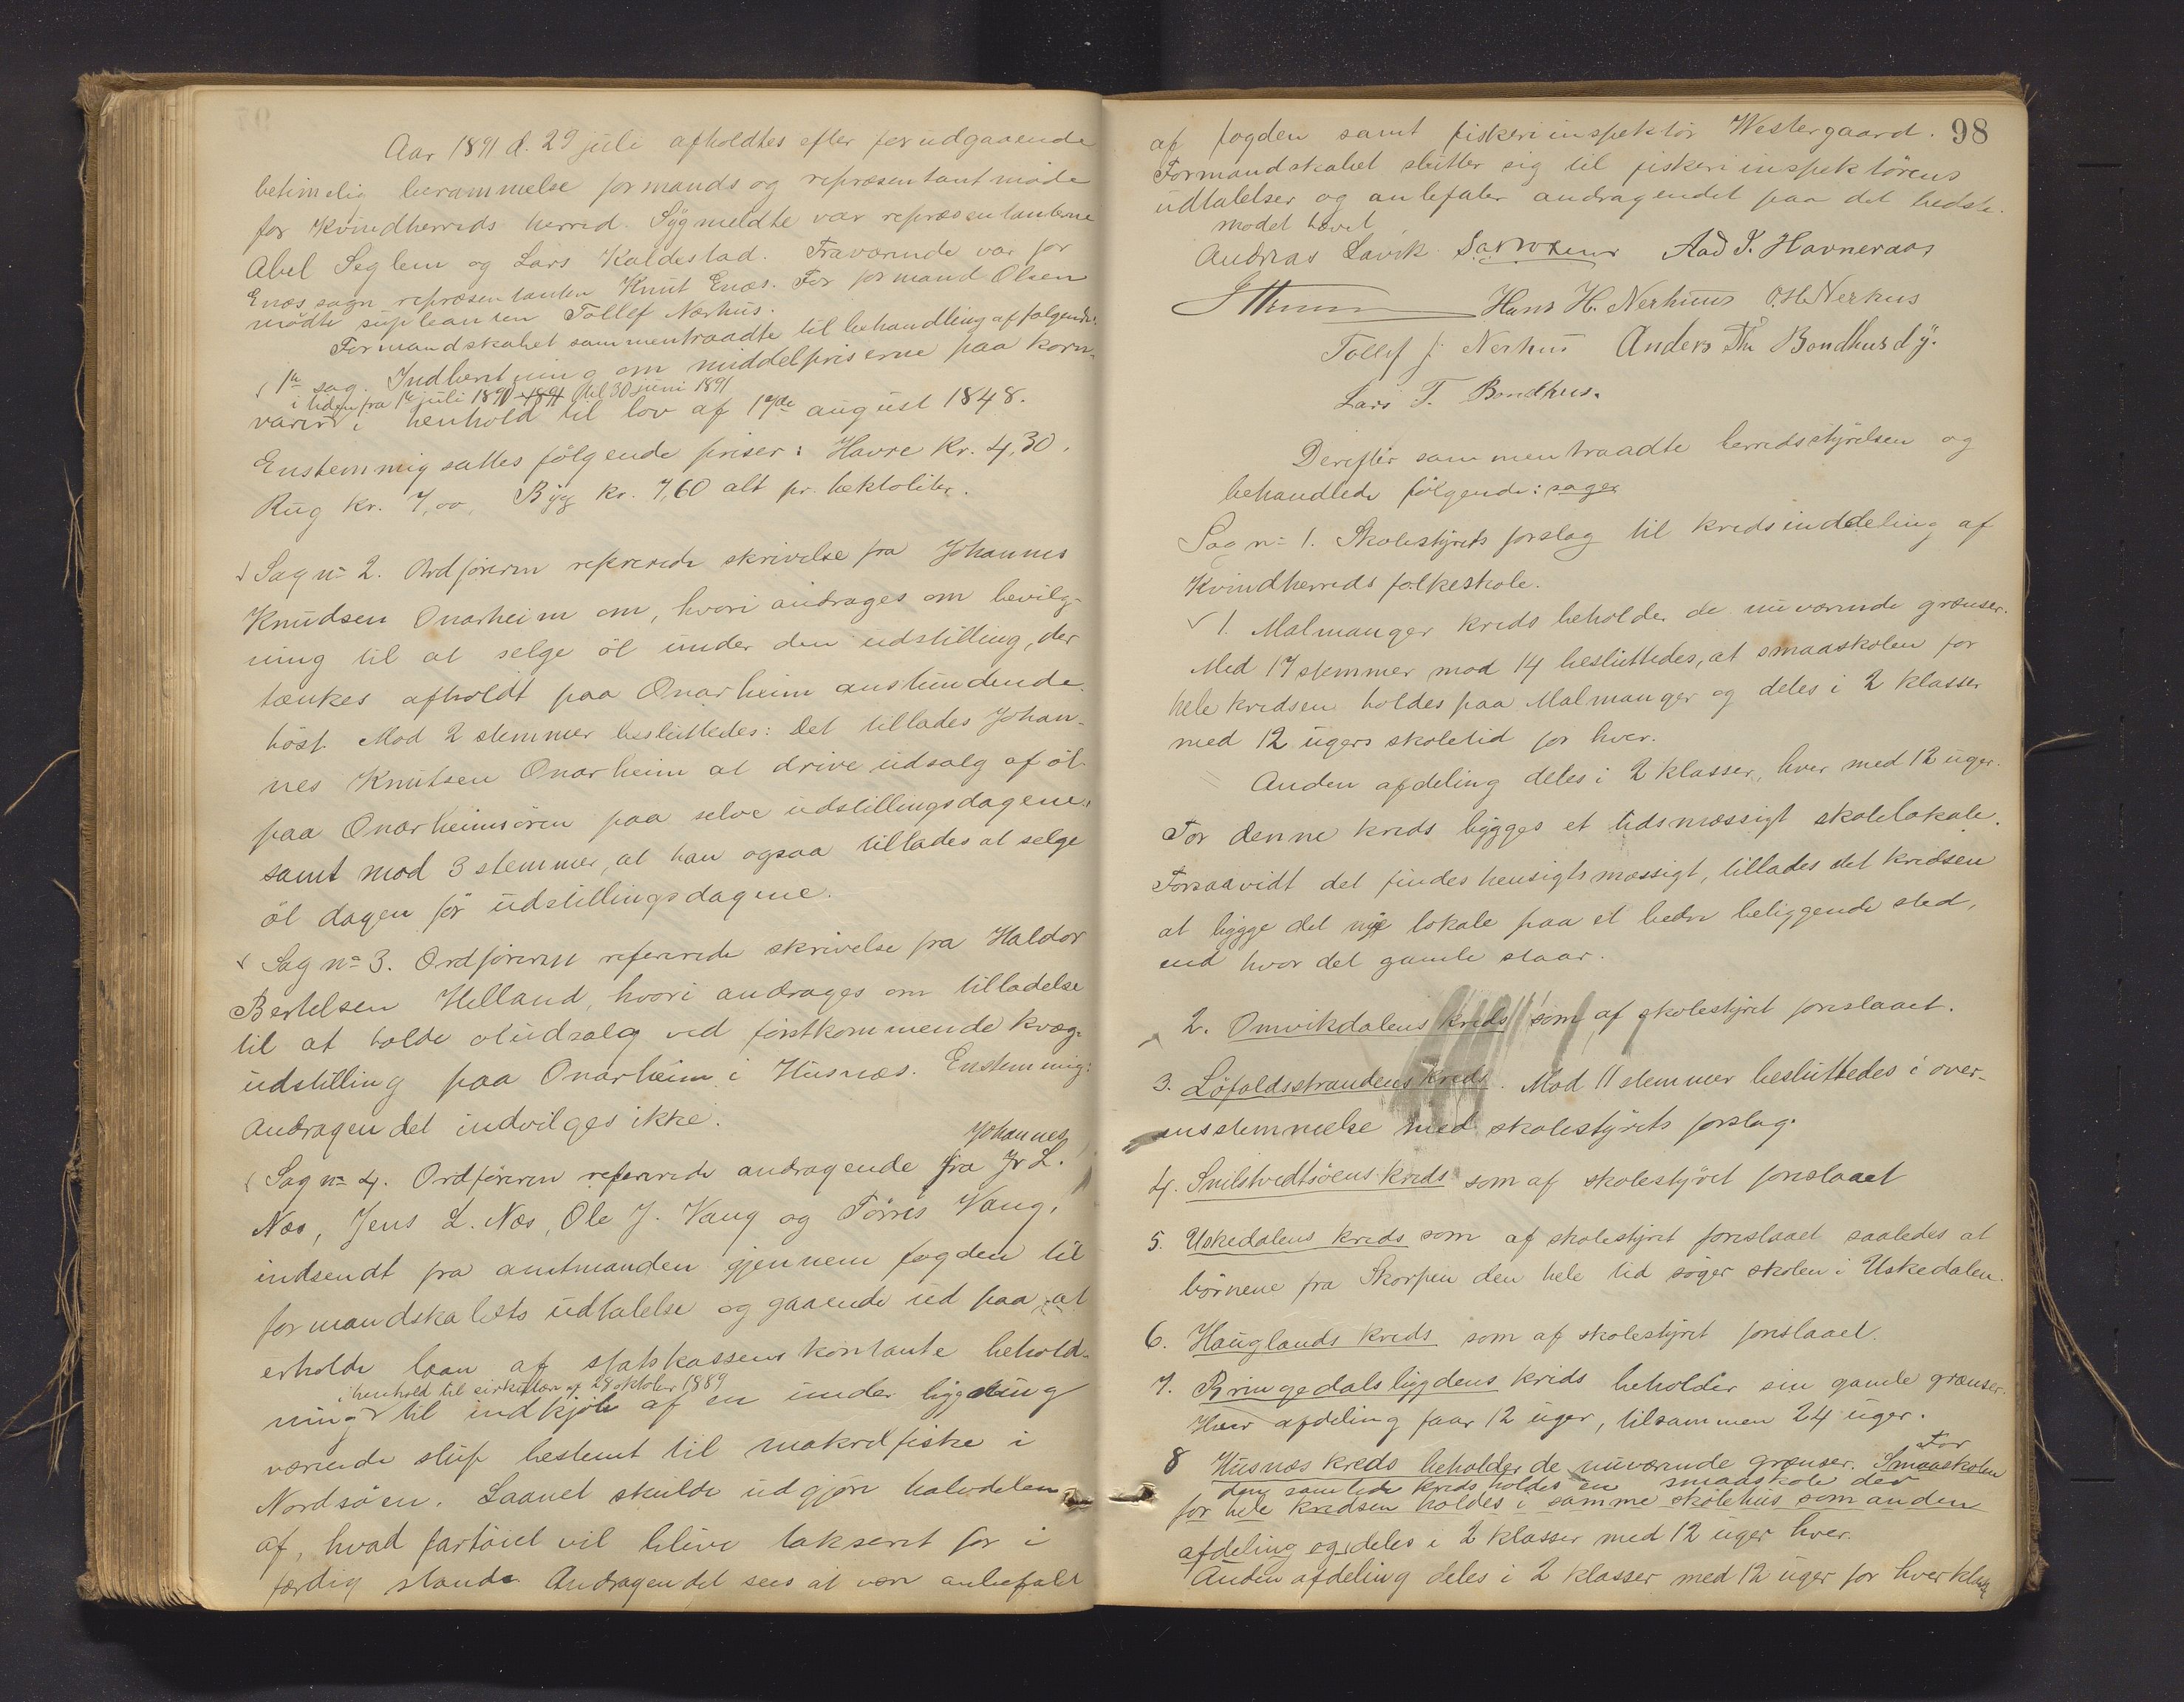 Aar 1891 d. 29 juli afholdtes efter forudgaaende
betimelig berammelse formands og repræsentantmøde
for Kvindherreds herred. Sygmeldte var repræsentanterne
Abel Seglem og Lars Kaldestad. Fraværende var for
Enæs sogn repræsentanten Knut Enæs. For formand Olsen
mødte supleanten Tollef Nærhus.
Formandskabet sammentraadte til behandling af følgende:
1ste sag. Indberetning om middelpriserne paa korn-
i tiden fra 1ste juli 1890 1891 til 30 juni 1891
varer i henhold til lov af 17de august 1848.
Enstemmig sattes følgende priser: Havre kr. 4,30.
Rug kr. 7,00, Byg kr. 7,60 alt pr. hektoliter.
Sag no 2. Ordføreren refererede skrivelse fra Johannes
Knudsen Onarheim om, hvori andrages om bevilg-
ning til at selge øl under den udstilling, der
tænkes afholdt paa Onarheim anstundende
høst. Mod 2 stemmer besluttedes: Det tillades Johan-
nes Knutsen Onarheim at drive udsalg af øl
paa Onarheimsøren paa selve udstillingsdagene,
samt mod 3 stemmer, at han ogsaa tillades at selge
øl dagen før udstillingsdagene.
Sag no 3. Ordføreren refererede skrivelse fra Haldor
Bertelsen Helland, hvori andrages om tilladelse
til at holde øludsalg ved førstkommende kvæg-
udstilling paa Onarheim i Husnæs. Enstemmig:
Andragendet indvilges ikke.
Johannes
Sag no 4. Ordføreren refererede andragende fra L.
Næs, Jens L. Næs, Ole J. Vaug og Tørris Vaug,
indsendt fra amtmanden gjennem fogden til
formandskabets udtalelse og gaaende ud paa at
erholde laan af statskassens kontante behold-
i henhold til cirkulær af 28 oktober 1889
ning til indkjøb af en under bygning
værende slup bestemt til makrelfiske i
Nordsøen. Laanet skulde udgjøre halvdelen
af, hvad fartøiet vil blive takseret for i
færdig stand. Andragendet sees at være anbefalt
98
af fogden samt fiskeriinspektør Westergaard.
Formandskabet slutter sig til fiskeriinspektørens
udtalelser og anbefaler andragendet paa det bedste.
mødet hævet
Andreas Lavik Aad T. Havneraas
Hans H. Nerhuus O.H. Nerhus
Tollef J. Nerhus Anders Th. Bondhus d.y.
Lars T. Bondhus.
Derefter sammentraadte herredsstyrelsen og
behandlede følgende: sager
Sag no 1. Skolestyrets forslag til kredsinddeling af
Kvindherreds folkeskole.
1. Malmanger kreds beholder de nuværende grænser.
Med 17 stemmer mod 14 besluttedes, at smaaskolen for
hele kredsen holdes paa Malmanger og deles i 2 klasser
med 12 ugers skoletid for hver.
Anden afdeling deles i 2 klasser, hver med 12 uger.
For denne kreds bygges et tidsmæssigt skolelokale.
Forsaavidt det findes hensigtsmæssigt, tillades det kredsen
at bygge det nye lokale paa et bedre beliggende sted,
end hvor det gamle staar.
2. Omvikdalens kreds som af skolestyret foreslaaet.
3. Løfaldsstrandens kreds. Mod 11 stemmer besluttedes i over-
ensstemmelse med skolestyrets forslag.
4. Snilstvedtsøens kreds som af skolestyret foreslaaet
5. Uskedalens kreds som af skolestyret foreslaaet saaledes at
børnene fra Skorpen den hele tid søger skolen i Uskedalen.
6. Hauglands kreds som af skolestyret foreslaaet.
7. Bringedalsbygdens kreds beholder sin gamle grænser.
Hver afdeling faar 12 uger, tilsammen 24 uger.
8 Husnæs kreds beholder de nuværende grænser. Smaaskolen
For
den samlede kreds holdes en smaaskole der
for hele kredsen holdes i samme skolehus som anden
afdeling og deles i 2 klasser med 12 uger hver.
Anden afdeling deles i 2 klasser med 12 uger for hver klasse